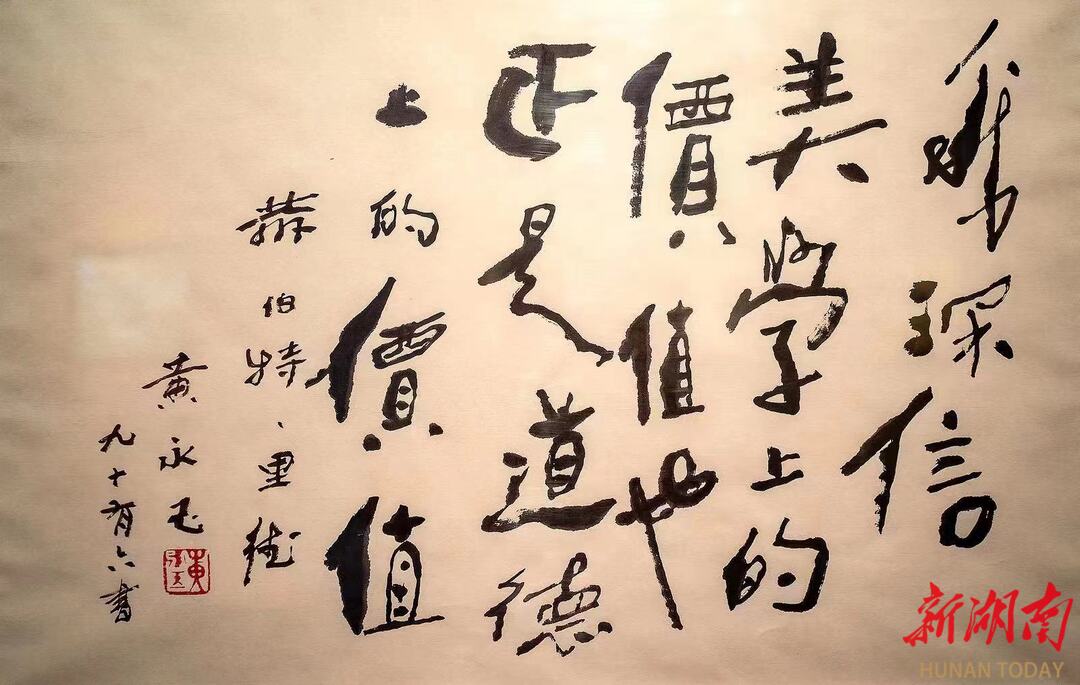 深信
美學上的
價值也
正是道德
上的價值
赫伯特、里德
黄永玉
九十有六書
新湖南
HUNAN TODAY